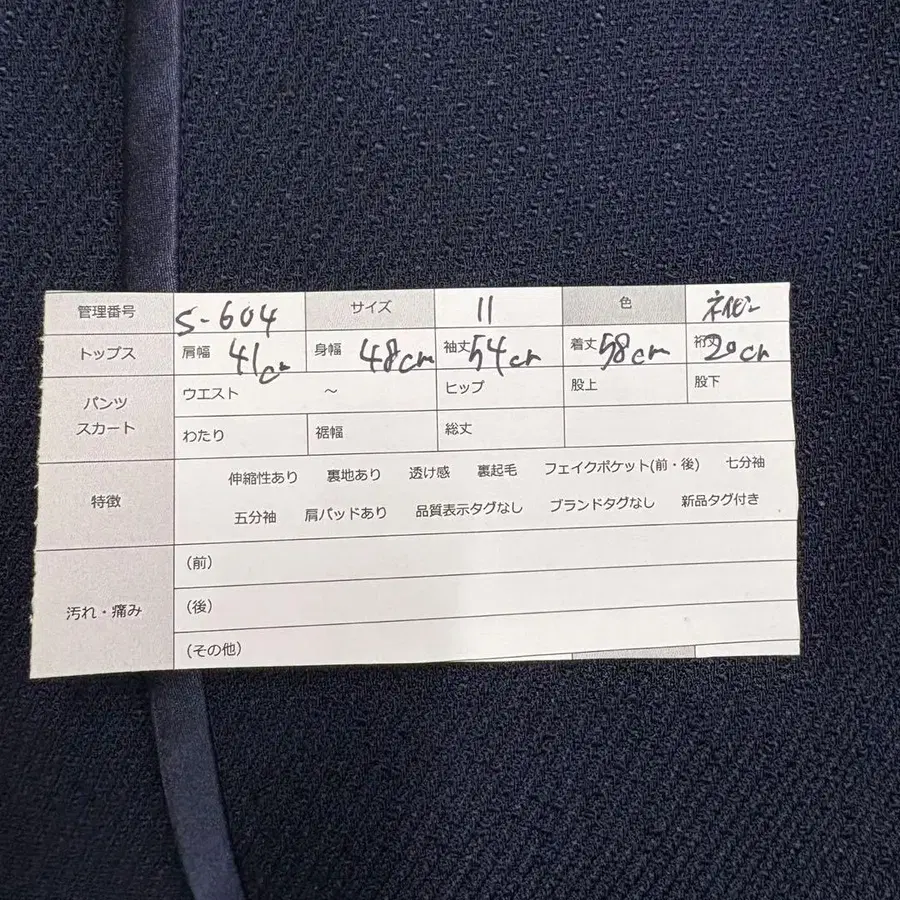 管理番号 S-604 サイズ 11 色 ネイビー
トップス 肩幅 41cm 身幅 48cm 袖丈 54cm 着丈 58cm 裄丈 20cm
パンツ スカート ウエスト ～ ヒップ 股上 股下
わたり 裾幅 総丈
特徴 伸縮性あり 裏地あり 透け感 裏起毛 フェイクポケット(前・後) 七分袖
五分袖 肩パッドあり 品質表示タグなし ブランドタグなし 新品タグ付き
汚れ・痛み (前)
(後)
(その他)